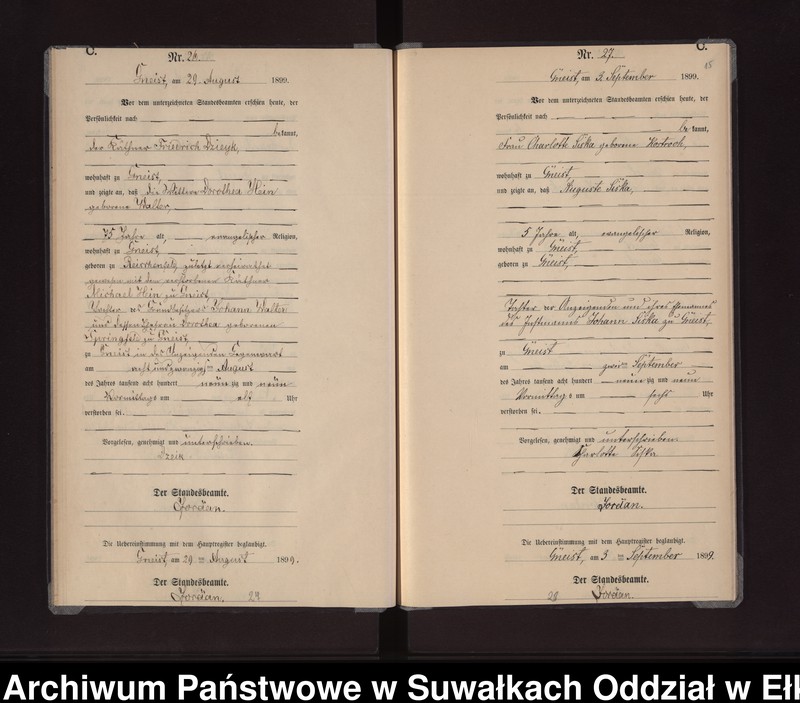 C.
Nr. 26.
Gneist, am 29 August 1899.
Vor dem unterzeichneten Standesbeamten erschien heute, der
Persönlichkeit nach
bekannt,
der Käthner Friedrich Dziejk,
wohnhaft zu Gneist,
und zeigte an, daß die Wittwe Dorothea Hein
geborene Walter,
75 Jahre alt, evangelischer Religion,
wohnhaft zu Gneist,
geboren zu zuletzt verheirathet
gewesen mit dem verstorbenen Käthner
Michael Hein zu Gneist,
Tochter des Grundbesitzers Johann Walter
und dessen Ehefrau Dorothea geborenen
zu Gneist,
zu Gneist in des Anzeigenden Gegenwart
am acht und zwanzigsten August
des Jahres tausend acht hundert neunzig und neun
Vormittags um elf Uhr
verstorben sei.
Vorgelesen, genehmigt und unterschrieben.
Der Standesbeamte.
Jordan.
Die Uebereinstimmung mit dem Hauptregister beglaubigt.
Gneist, am 29 ten August 1899.
Der Standesbeamte.
Jordan. 29
C.
Nr. 27.
Gneist, am 3. September 1899.
Vor dem unterzeichneten Standesbeamten erschien heute, der
Persönlichkeit nach
bekannt,
Frau Charlotte Siska geborene
wohnhaft zu Gneist,
und zeigte an, daß Auguste Siska,
5 Jahre alt, evangelischer Religion,
wohnhaft zu Gneist,
geboren zu Gneist,
Tochter der Anzeigenden und ihres Ehemannes
des Instmanns Johann Siska zu Gneist,
zu Gneist
am zweiten September
des Jahres tausend acht hundert neunzig und neun
Vormittags um sechs Uhr
verstorben sei.
Vorgelesen, genehmigt und unterschrieben
Charlotte Siska
Der Standesbeamte.
Jordan.
Die Uebereinstimmung mit dem Hauptregister beglaubigt.
Gneist, am 3 ten September 1899.
Der Standesbeamte.
28 Jordan.
Archiwum Państwowe w Suwałkach Oddział w Ełk